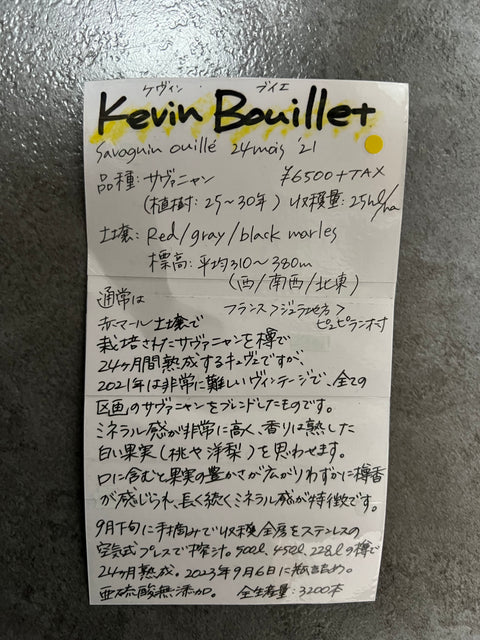 ケヴィン ブイエ
Kevin Bouillet
Savagnin ouillé 24mois '21
品種: サヴァニャン ¥6500+TAX
(植樹: 25〜30年) 収穫量: 25hl/ha
土壌: Red/gray/black marles
標高: 平均310〜380m
(西/南西/北東)
通常は フランス>ジュラ地方>
赤マール土壌で ピュピラン村
栽培されたサヴァニャンを樽で
24ヶ月間熟成するキュヴェですが、
2021年は非常に難しいヴィンテージで、全ての
区画のサヴァニャンをブレンドしたものです。
ミネラル感が非常に高く、香りは熟した
白い果実(桃や洋梨)を思わせます。
口に含むと果実の豊かさが広がりわずかに樽香
が感じられ、長く続くミネラル感が特徴です。
9月下旬に手摘みで収穫全房をステンレスの
空気式プレスで搾汁。500l,450l,228lの樽で
24ヶ月熟成。2023年9月6日に瓶詰め。
亜硫酸無添加。 全生産量: 3200本